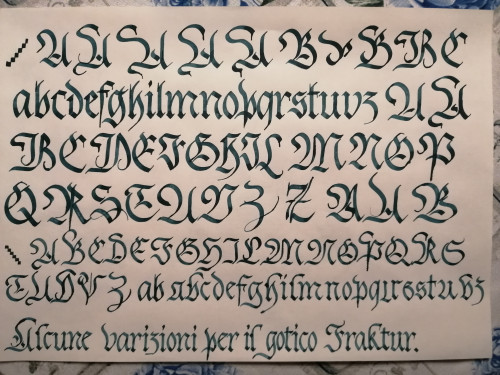 A A A A A B v B B C
abcdefghilmnopqrstuvz A A
B C D E F G H I L M N O P
Q R S T U V Z Z A A B
A B C D E F G H I L M N O P Q R S
T U D V Z ab abcdefghilmnopqrsstuvz
Alcune varizioni per il gotico Fraktur.